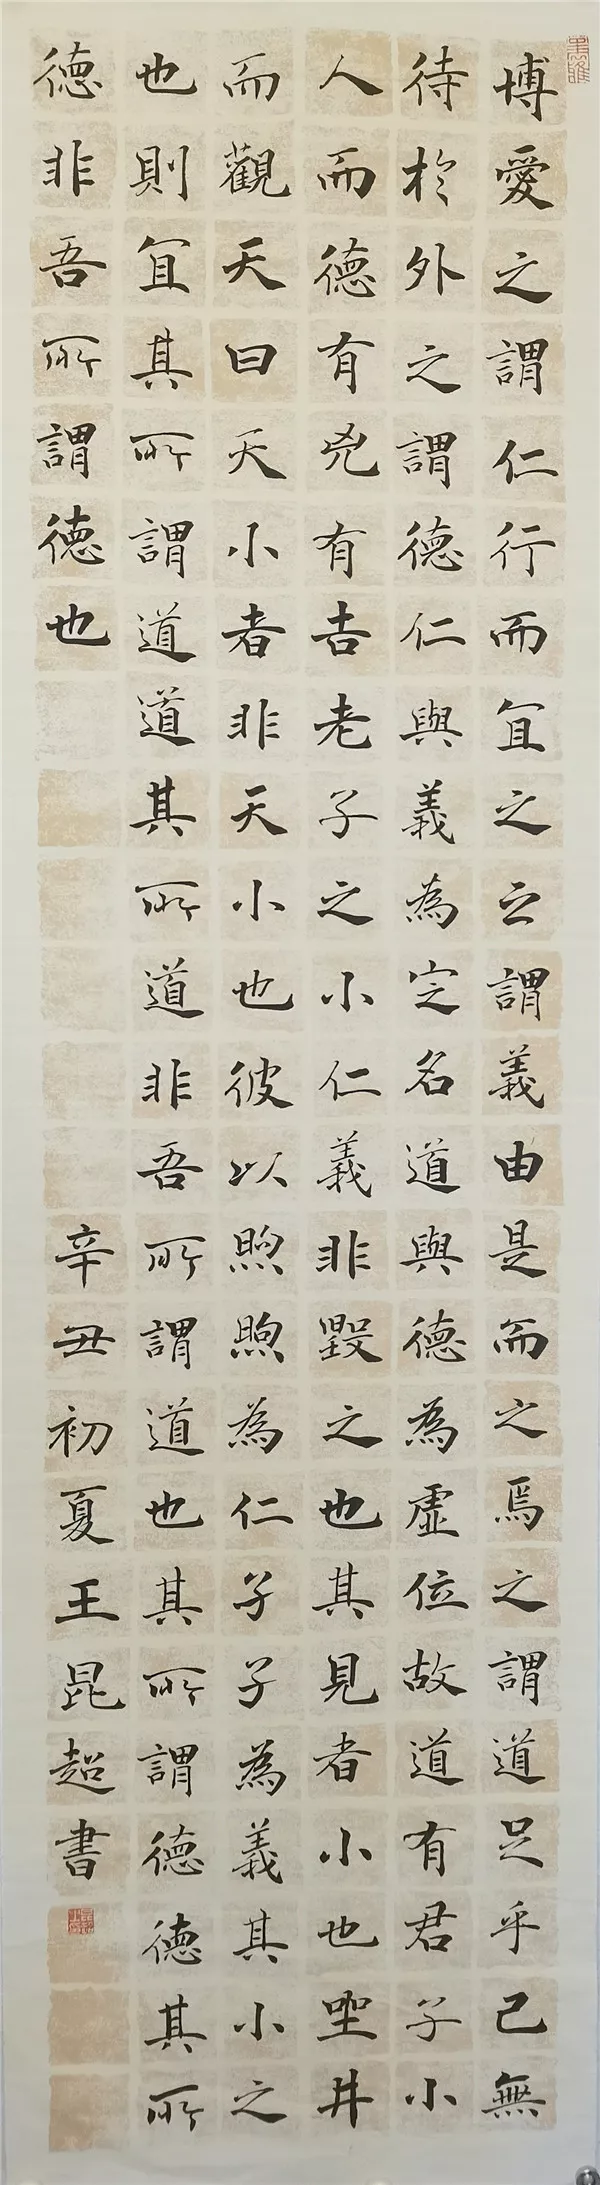 博愛之謂仁行而宜之之謂義由是而之焉之謂道足乎己無
待於外之謂德仁與義為定名道與德為虛位故道有君子小
人而德有兇有吉老子之小仁義非毀之也其見者小也坐井
而觀天曰天小者非天小也彼以煦煦為仁孑孑為義其小之
也則宜其所謂道道其所道非吾所謂道也其所謂德德其所
德非吾所謂德也
辛丑初夏王昆超書